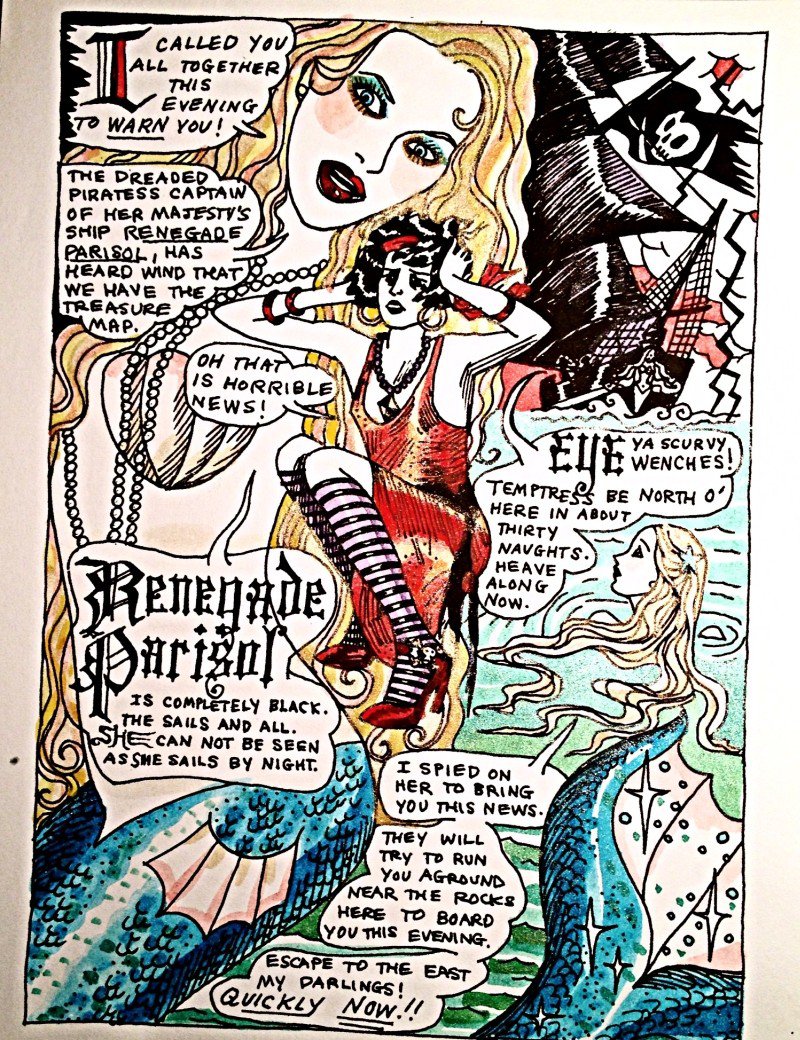 I CALLED YOU
ALL TOGETHER
THIS
EVENING
TO WARN YOU!
THE DREADED
PIRATESS CAPTAIN
OF HER MAJESTY'S
SHIP RENEGADE
PARISOL, HAS
HEARD WIND THAT
WE HAVE THE
TREASURE
MAP.
OH THAT
IS HORRIBLE
NEWS!
EYE YA SCURVY
WENCHES!
TEMPTRESS BE NORTH O'
HERE IN ABOUT
THIRTY
NAUGHTS.
HEAVE
ALONG
NOW.
RENEGADE
PARISOL
IS COMPLETELY BLACK.
THE SAILS AND ALL.
SHE CAN NOT BE SEEN
AS SHE SAILS BY NIGHT.
I SPIED ON
HER TO BRING
YOU THIS NEWS.
THEY WILL
TRY TO RUN
YOU AGROUND
NEAR THE ROCKS
HERE TO BOARD
YOU THIS EVENING.
ESCAPE TO THE EAST
MY DARLINGS!
QUICKLY NOW!!